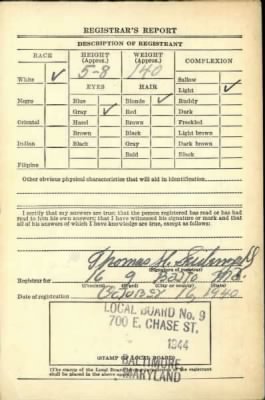 REGISTRAR'S REPORT
DESCRIPTION OF REGISTRANT
RACE HEIGHT (Approx.) WEIGHT (Approx.) COMPLEXION
5-8 140
White ✓ Sallow
EYES HAIR Light ✓
Negro Blue Blonde ✓ Ruddy
Gray ✓ Red Dark
Oriental Hazel Brown Freckled
Brown Black Light brown
Indian Black Gray Dark brown
Bald Black
Filipino
Other obvious physical characteristics that will aid in identification
I certify that my answers are true; that the person registered has read or has had
read to him his own answers; that I have witnessed his signature or mark and that
all of his answers of which I have knowledge are true, except as follows:
Thomas
(Signature of registrar)
Registrar for 6 9 Balto Md.
(Precinct) (Ward) (City or county)
Date of registration October 16, 1940
LOCAL BOARD No. 9
700 E. CHASE ST.
1944
(STAMP OF LOCAL BOARD)
BALTIMORE
MARYLAND
(The stamp of the Local Board of the registrant
shall be placed in the above space)